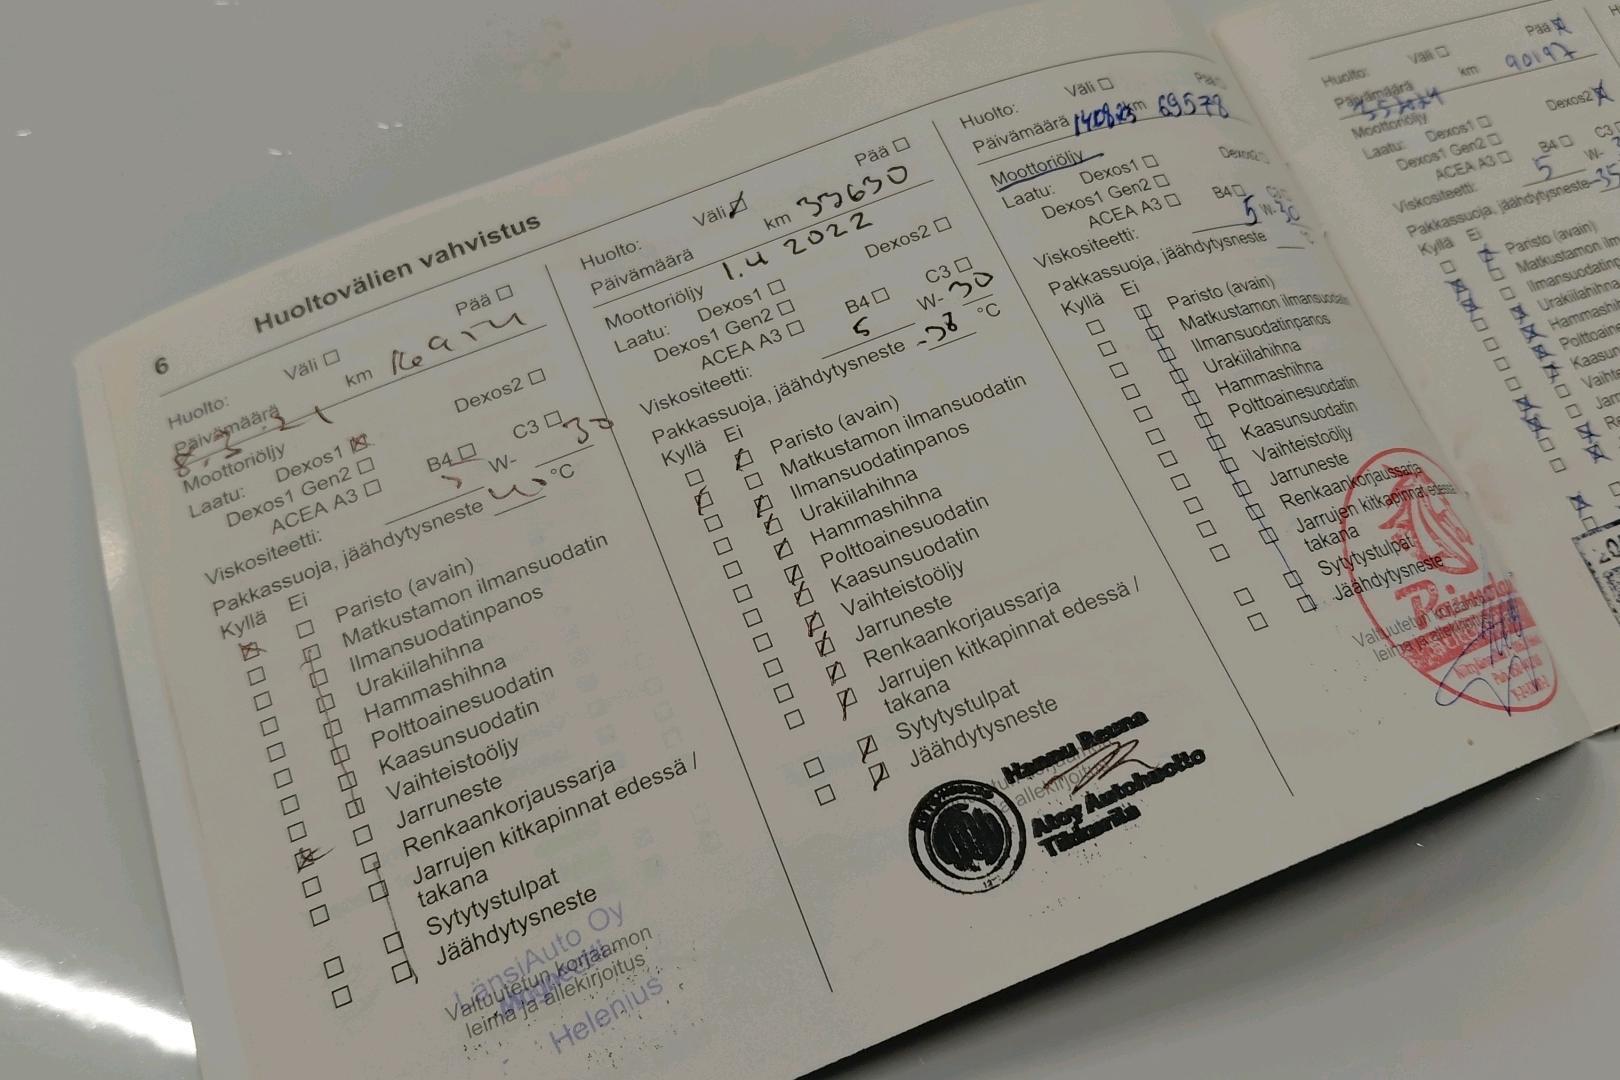 6
Huoltovälien vahvistus
Huolto: Väli Pää
Päivämäärä 8.3.21 km
Moottoriöljy
Laatu: Dexos1 Dexos2
Dexos1 Gen2
ACEA A3 B4 C3
Viskositeetti: 5 W- 30
Pakkassuoja, jäähdytysneste °C
Kyllä Ei
Paristo (avain)
Matkustamon ilmansuodatin
Ilmansuodatinpanos
Urakiilahihna
Hammashihna
Polttoainesuodatin
Kaasunsuodatin
Vaihteistoöljy
Jarruneste
Renkaankorjaussarja
Jarrujen kitkapinnat edessä /
takana
Sytytystulpat
Jäähdytysneste
LänsiAuto Oy
Valtuutetun korjaamon
leima ja allekirjoitus
Helenius
Huolto: Väli Pää
Päivämäärä 1.4 2022 km 33630
Moottoriöljy
Laatu: Dexos1 Dexos2
Dexos1 Gen2
ACEA A3 B4 C3
Viskositeetti: 5 W- 30
Pakkassuoja, jäähdytysneste -38 °C
Kyllä Ei
Paristo (avain)
Matkustamon ilmansuodatin
Ilmansuodatinpanos
Urakiilahihna
Hammashihna
Polttoainesuodatin
Kaasunsuodatin
Vaihteistoöljy
Jarruneste
Renkaankorjaussarja
Jarrujen kitkapinnat edessä /
takana
Sytytystulpat
Jäähdytysneste
Hannu Reuna
allekirjoitus
Aloy Autohuolto
Tikkurila
Huolto: Väli Pää
Päivämäärä 140823 km 69578
Moottoriöljy
Laatu: Dexos1 Dexos2
Dexos1 Gen2
ACEA A3 B4 C3
Viskositeetti: 5 W- 30
Pakkassuoja, jäähdytysneste °C
Kyllä Ei
Paristo (avain)
Matkustamon ilmansuodatin
Ilmansuodatinpanos
Urakiilahihna
Hammashihna
Polttoainesuodatin
Kaasunsuodatin
Vaihteistoöljy
Jarruneste
Renkaankorjaussarja
Jarrujen kitkapinnat edessä
takana
Sytytystulpat
Jäähdytysneste
Valtuutetun korjaamon
leima ja allekirjoitus
Huolto: Väli Pää
Päivämäärä km 90197
Moottoriöljy
Laatu: Dexos1 Dexos2
Dexos1 Gen2
ACEA A3 B4 C3
Viskositeetti: 5 W-
Pakkassuoja, jäähdytysneste -35
Kyllä Ei
Paristo (avain)
Matkustamon ilm
Ilmansuodatin
Urakiilahihna
Hammas
Polttoain
Kaasun
Vaihte
Jar